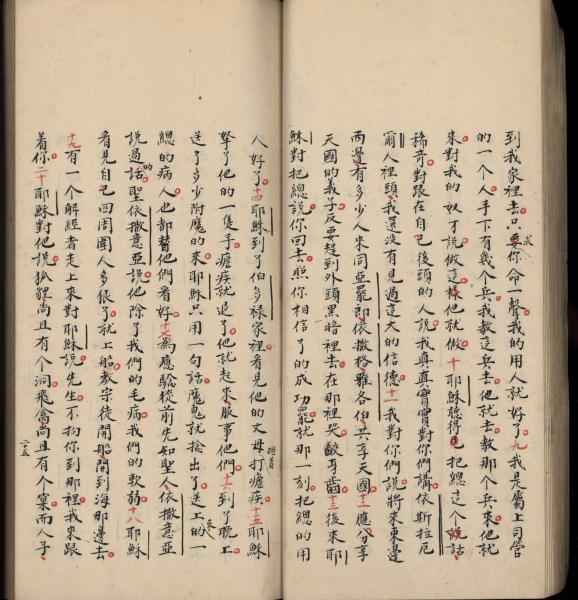 到我家裡去只要求你命一聲我的用人就好了九我是屬上司管
的一个人手下有幾个兵我教這兵去他就去教那个兵來他就
來對我的奴才說做這樣他就做十耶穌聽得見把總這个說話
稀奇對跟在自己後頭的人說我真真實實對你們講依斯拉厄
爾人裡頭我還沒有見過這大的信德十一我對你們說將來東邊
西邊有多少人來同亞罷郎依撒格雅各伯共享天國十二應分享
天國的義子反要趕到外頭黑暗裡去在那裡哭齩牙齒十三後來耶
穌對把總說你回去照你相信了的成功罷就那一刻把總的用
人好了十四耶穌到了伯多祿家裡看見他的丈母打瘧疾睡着十五耶穌
拏了他的一隻手瘧疾就退了他就起來服事他們十六到了晚上
送了多少附魔的來耶穌只用一句話魔鬼就捨出了送上來的一
總的病人也都替他們看好十七為應驗從前先知聖人依撒意亞
說過的話聖依撒意亞說他除了我們的毛病我們的軟弱十八耶穌
看見自己四周圍人多狠了就上船教宗徒開船開到海那邊去
十九有一个解經者走上來對耶穌說先生不拘你到那裡我來跟
着你二十耶穌對他說狐狸尚且有个洞飛禽尚且有个窠而人子
二五